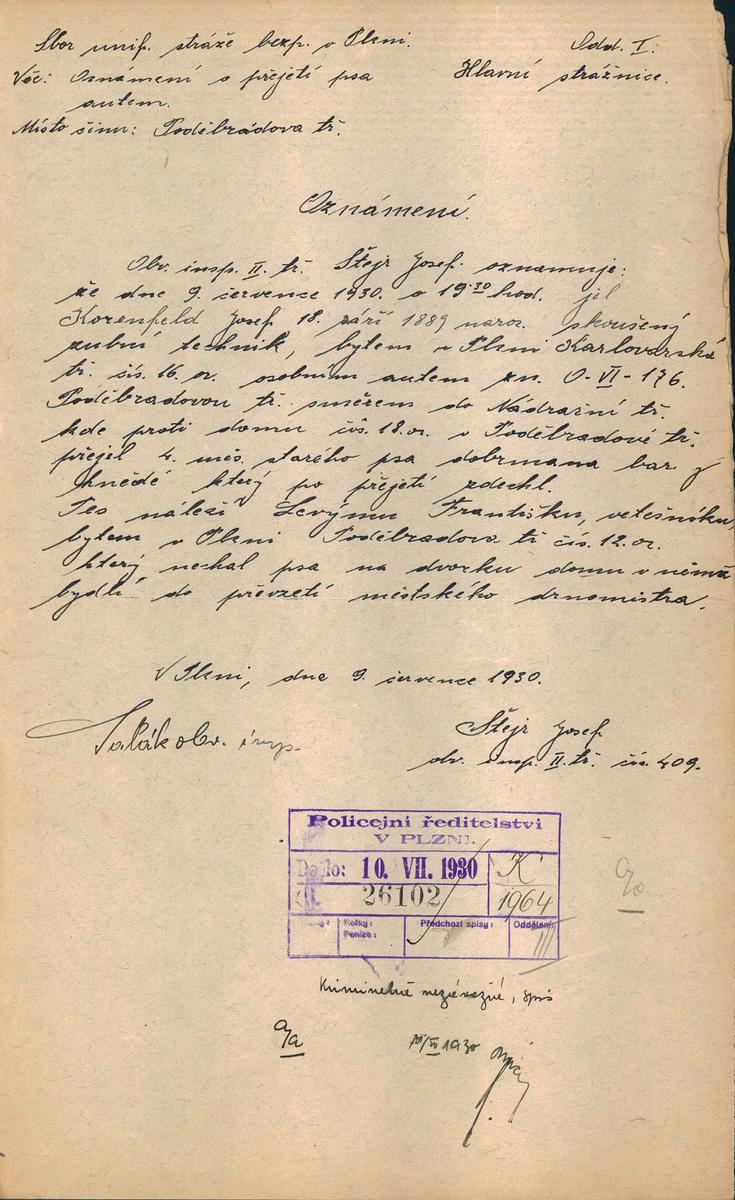 Sbor unif. stráže bezp. v Plzni. Odd. I.
Věc: Oznámení o přejetí psa Hlavní strážnice.
autem.
Místo činu: Poděbradova tř.
Oznámení.
Obv. insp. II. tř. Štejr Josef oznamuje:
že dne 9. července 1930. o 19 30 hod. jel
Korenfeld Josef 18. září 1889 naroz. zkoušený
zubní technik, bytem v Plzni Karlovarská
tř. čís. 16. or. osobním autem zn. O-VI-176.
Poděbradovou tř. směrem do Nádražní tř.
kde proti domu čís. 18. or. v Poděbradově tř.
přejel 4. měs. starého psa dobrmana bar
hnědé který po přejetí zdechl.
Pes náleží Levýmu Františku, vetešníku,
bytem v Plzni Poděbradova tř čís. 12. or.
který nechal psa na dvorku domu v němž
bydlí do převzetí městského drnomistra.
V Plzni, dne 9. července 1930.
obv. insp.
Štejr Josef
obv. insp. II. tř. čís. 409.
Policejní ředitelství
V PLZNI.
Došlo: 10. VII. 1930 K
26102 1964
Kolky: Předchozí spisy: Oddělení:
Peníze: III
a/a
Kriminelně nezávazné, spis
a/a